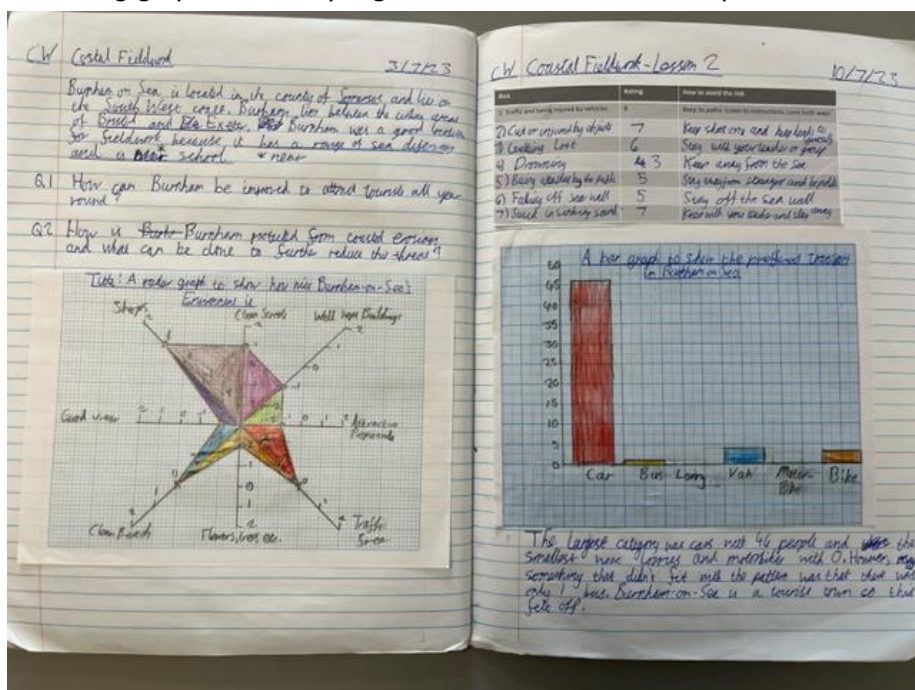 CW Costal Fieldwork 3/7/23
Burnham on Sea is located in the county of Somerset and lies on
the South West coast. Burnham lies between the urban areas
of Bristol and Exeter. Burnham was a good location
for fieldwork because it has a range of sea defences
and is near school. * near
Q.1 How can Burnham be improved to attract tourists all year
round?
Q2 How is Burnham protected from coastal erosion
and what can be done to further reduce the threat?
Title: A radar graph to show how nice Burnham-on-Sea's
Shops
Clean Streets
Well kept Buildings
Good views
Attractive
Promenade
Clean Beach
Flowers, trees, etc.
Traffic
free
CW Coastal Fieldwork - Lesson 2 10/7/23
Risk Rating How to avoid the risk
1. Traffic and being injured by vehicles
2) Cut or injured by objects 7 Keep shoes on and
3) Getting Lost 6 Stay with your leader or group
4) Drowning 3 Keep away from the sea
5) Being by the public 5 Stay away from strangers and be polite
6) Falling off sea wall 5 Stay off the sea wall
7) Stuck in sinking sand 7 Keep with your leader and stay away
A bar graph to show the preferred transport
in Burnham on Sea.
50
45
40
35
30
25
20
15
10
5
0
Car Bus Lorry Van Motor Bike Bike
The largest category was cars with 46 people and the
smallest were lorries and motorbikes with 0. However,
something that didn't fit with the pattern was that there was
only 1 bus. Burnham-on-Sea is a tourist town so this
felt off.